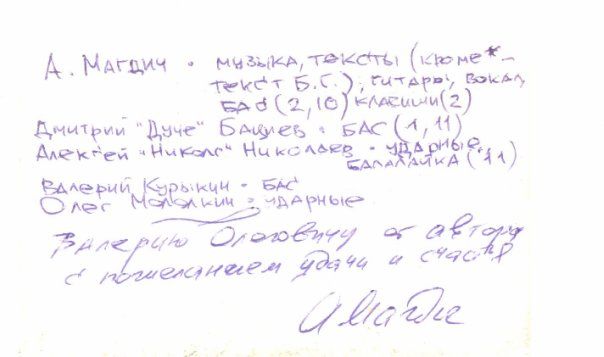 А. Магдич - музыка, тексты (кроме *-
текст Б.Г.), гитары, вокал,
бас (2, 10) клавиши (2)
Дмитрий "Дуче" - бас (1, 11)
Алексей "Николс" Николаев - ударные,
балалайка (11)
Валерий Курыкин - бас
Олег Молокин - ударные
Валерию Олеговичу от автора
с пожеланием удачи и счастья
АМагди